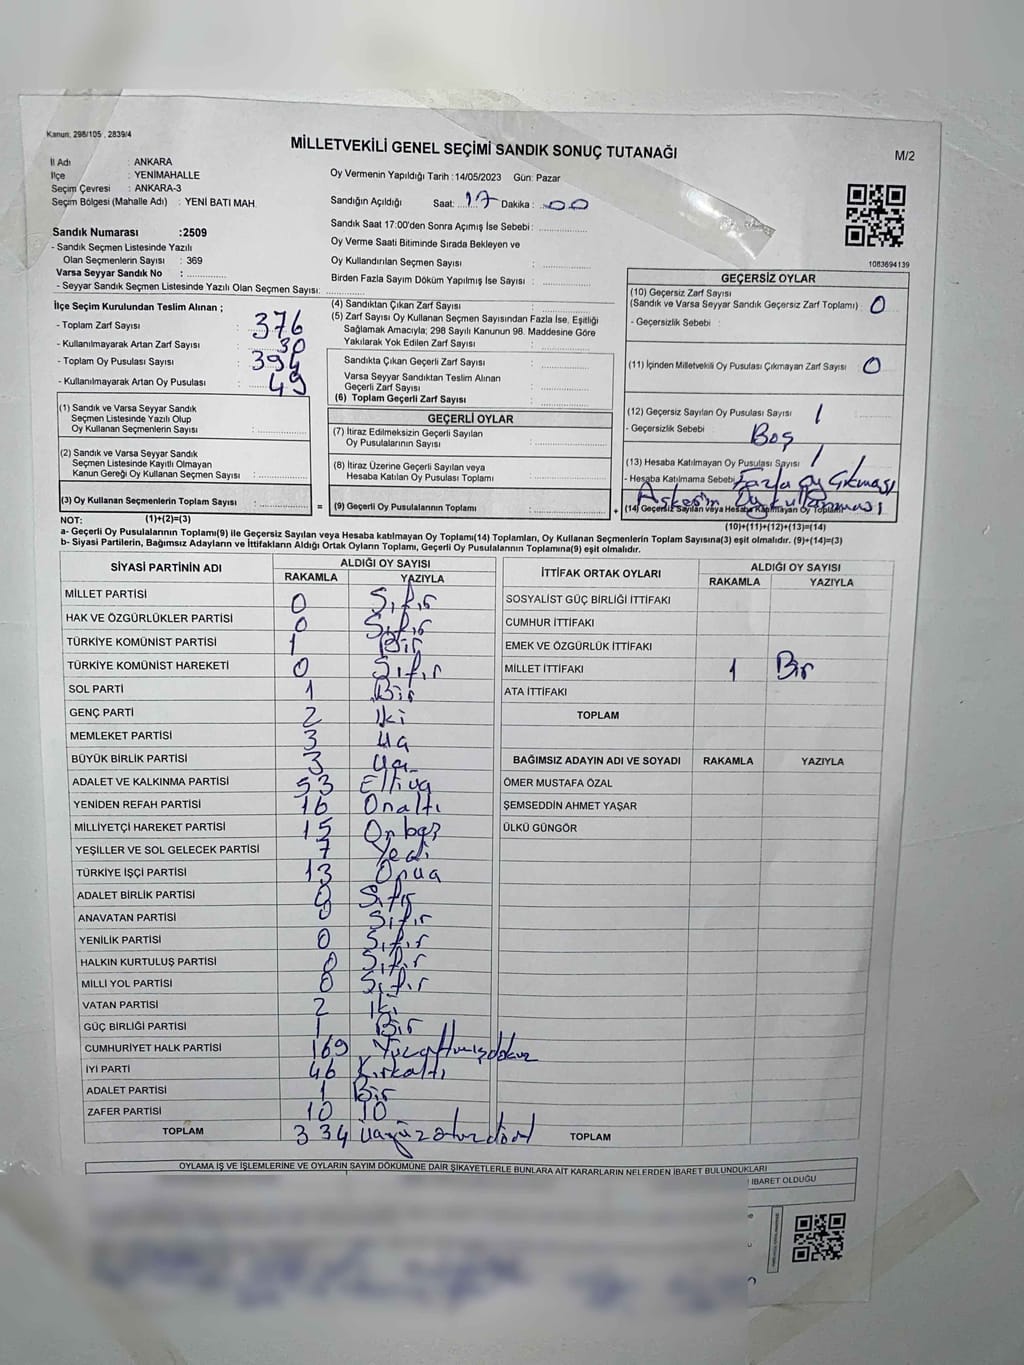 Kanun: 298/105 , 2839/4
MİLLETVEKİLİ GENEL SEÇİMİ SANDIK SONUÇ TUTANAĞI
M/2
İl Adı : ANKARA
İlçe : YENİMAHALLE
Seçim Çevresi : ANKARA-3
Seçim Bölgesi (Mahalle Adı) : YENİ BATI MAH.
Oy Vermenin Yapıldığı Tarih : 14/05/2023 Gün: Pazar
Sandığın Açıldığı Saat: 17 Dakika : 00
Sandık Saat 17:00'den Sonra Açımış İse Sebebi :
Oy Verme Saati Bitiminde Sırada Bekleyen ve
Oy Kullandırılan Seçmen Sayısı :
Birden Fazla Sayım Döküm Yapılmış İse Sayısı :
1083694139
Sandık Numarası :2509
- Sandık Seçmen Listesinde Yazılı
Olan Seçmenlerin Sayısı : 369
Varsa Seyyar Sandık No :
- Seyyar Sandık Seçmen Listesinde Yazılı Olan Seçmen Sayısı:
İlçe Seçim Kurulundan Teslim Alınan ;
- Toplam Zarf Sayısı : 376
- Kullanılmayarak Artan Zarf Sayısı : 30
- Toplam Oy Pusulası Sayısı : 394
- Kullanılmayarak Artan Oy Pusulası : 49
(1) Sandık ve Varsa Seyyar Sandık
Seçmen Listesinde Yazılı Olup
Oy Kullanan Seçmenlerin Sayısı :
(2) Sandık ve Varsa Seyyar Sandık
Seçmen Listesinde Kayıtlı Olmayan
Kanun Gereği Oy Kullanan Seçmen Sayısı :
(3) Oy Kullanan Seçmenlerin Toplam Sayısı :
(1)+(2)=(3)
(4) Sandıktan Çıkan Zarf Sayısı :
(5) Zarf Sayısı Oy Kullanan Seçmen Sayısından Fazla İse, Eşitliği
Sağlamak Amacıyla; 298 Sayılı Kanunun 98. Maddesine Göre
Yakılarak Yok Edilen Zarf Sayısı :
Sandıkta Çıkan Geçerli Zarf Sayısı :
Varsa Seyyar Sandıktan Teslim Alınan
Geçerli Zarf Sayısı :
(6) Toplam Geçerli Zarf Sayısı :
GEÇERLİ OYLAR
(7) İtiraz Edilmeksizin Geçerli Sayılan
Oy Pusulalarının Sayısı :
(8) İtiraz Üzerine Geçerli Sayılan veya
Hesaba Katılan Oy Pusulası Toplamı :
= (9) Geçerli Oy Pusulalarının Toplamı : +
GEÇERSİZ OYLAR
(10) Geçersiz Zarf Sayısı
(Sandık ve Varsa Seyyar Sandık Geçersiz Zarf Toplamı) : 0
- Geçersizlik Sebebi :
(11) İçinden Milletvekili Oy Pusulası Çıkmayan Zarf Sayısı 0
(12) Geçersiz Sayılan Oy Pusulası Sayısı : 1
- Geçersizlik Sebebi Boş
(13) Hesaba Katılmayan Oy Pusulası Sayısı : 1
- Hesaba Katılmama Sebebi Fazla Oy Çıkması
Askerin Oy kullanması
(14) Geçersiz Sayılan veya Hesaba Katılmayan Oy Toplamı
(10)+(11)+(12)+(13)=(14)
NOT:
a- Geçerli Oy Pusulalarının Toplamı(9) ile Geçersiz Sayılan veya Hesaba katılmayan Oy Toplamı(14) Toplamları, Oy Kullanan Seçmenlerin Toplam Sayısına(3) eşit olmalıdır. (9)+(14)=(3)
b- Siyasi Partilerin, Bağımsız Adayların ve İttifakların Aldığı Ortak Oyların Toplamı, Geçerli Oy Pusulalarının Toplamına(9) eşit olmalıdır.
SİYASİ PARTİNİN ADI ALDIĞI OY SAYISI
RAKAMLA YAZIYLA
MİLLET PARTİSİ 0 Sıfır
HAK VE ÖZGÜRLÜKLER PARTİSİ 0 Sıfır
TÜRKİYE KOMÜNİST PARTİSİ 1 Bir
TÜRKİYE KOMÜNİST HAREKETİ 0 Sıfır
SOL PARTİ 1 Bir
GENÇ PARTİ 2 İki
MEMLEKET PARTİSİ 3 Üç
BÜYÜK BİRLİK PARTİSİ 3 Üç
ADALET VE KALKINMA PARTİSİ 53 Elliüç
YENİDEN REFAH PARTİSİ 16 Onaltı
MİLLİYETÇİ HAREKET PARTİSİ 15 Onbeş
YEŞİLLER VE SOL GELECEK PARTİSİ 7 Yedi
TÜRKİYE İŞÇİ PARTİSİ 13 Onüç
ADALET BİRLİK PARTİSİ 0 Sıfır
ANAVATAN PARTİSİ 0 Sıfır
YENİLİK PARTİSİ 0 Sıfır
HALKIN KURTULUŞ PARTİSİ 0 Sıfır
MİLLİ YOL PARTİSİ 0 Sıfır
VATAN PARTİSİ 2 İki
GÜÇ BİRLİĞİ PARTİSİ 1 Bir
CUMHURİYET HALK PARTİSİ 169 Yüzaltmışdokuz
İYİ PARTİ 46 Kırkaltı
ADALET PARTİSİ 1 Bir
ZAFER PARTİSİ 10 10
TOPLAM 334 Üçyüzotuzdört
İTTİFAK ORTAK OYLARI ALDIĞI OY SAYISI
RAKAMLA YAZIYLA
SOSYALİST GÜÇ BİRLİĞİ İTTİFAKI
CUMHUR İTTİFAKI
EMEK VE ÖZGÜRLÜK İTTİFAKI
MİLLET İTTİFAKI 1 Bir
ATA İTTİFAKI
TOPLAM
BAĞIMSIZ ADAYIN ADI VE SOYADI RAKAMLA YAZIYLA
ÖMER MUSTAFA ÖZAL
ŞEMSEDDİN AHMET YAŞAR
ÜLKÜ GÜNGÖR
TOPLAM
OYLAMA İŞ VE İŞLEMLERİNE VE OYLARIN SAYIM DÖKÜMÜNE DAİR ŞİKAYETLERLE BUNLARA AİT KARARLARIN NELERDEN İBARET BULUNDUKLARI
İBARET OLDUĞU